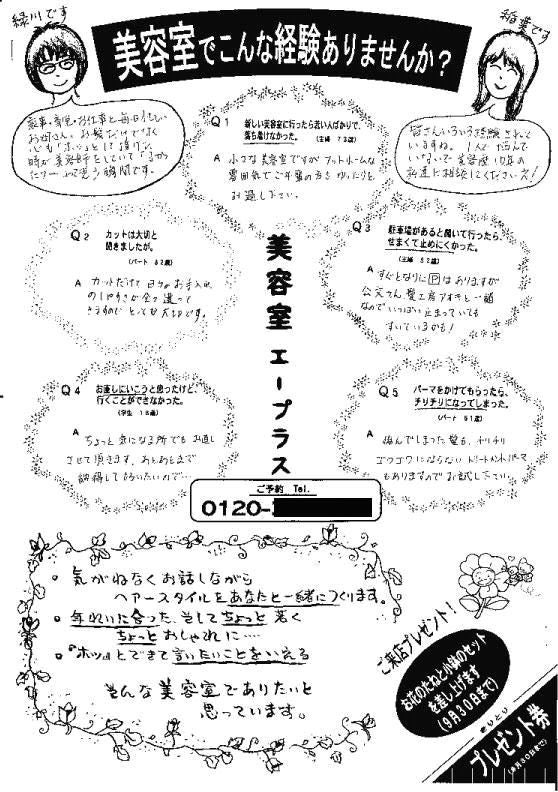 緑川です
美容室でこんな経験ありませんか？
稲葉です
家事・育児・お仕事と毎日忙しい
お母さん。お髪だけでなく
心も「ホッ」として頂けた
時が美容師をしていて「よかっ
たァー」って思う瞬間です。
皆さんいろいろ経験されて
いますね。1人で悩んで
いないで美容歴10年の
私達に相談してください！
Q1 新しい美容室に行ったら若い人ばかりで、
落ち着けなかった。
A 小さな美容室ですがアットホームな
雰囲気でご年輩の方もゆったりと
お過し下さい。
Q2 カットは大切と
聞きましたが。
(パート 62歳)
A カットだけで日々のお手入れ
のしやすさが全く違って
きますのでとっても大切です。
Q3 駐車場があると聞いて行ったら、
せまくて止めにくかった。
(主婦 52歳)
A すぐとなりにPはありますが
公文さん、髪工房アオキと一緒
なのでいっぱい止まっていても
すいているかも！
Q4 お直しにいこうと思ったけど、
行くことができなかった。
(学生 18歳)
A ちょっと気になる所でもお直し
させて頂きます。
納得してもらいたいので…
Q5 パーマをかけてもらったら、
チリチリになってしまった。
(パート 51歳)
A 痛んでしまった髪も、チリチリ
ゴワゴワにならないトリートメントパーマ
もありますのでお試し下さい。
美容室 エープラス
ご予約 Tel.
0120-
・気がねなくお話しながら
ヘアースタイルをあなたと一緒につくります。
・年れいに合った、そしてちょっと若く
ちょっとおしゃれに……
・『ホッ』とできて言いたいことをいえる
そんな美容室でありたいと
思っています。
ご来店プレゼント！
お花のたねと小鉢のセット
を差し上げます
(9月30日まで)
きりとり
プレゼント券
(9月30日まで)